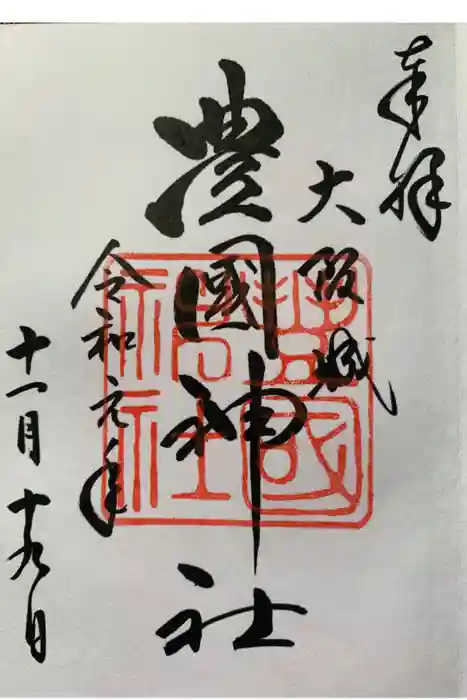 奉拝
大阪城
豊國神社
令和元年
十一月十九日
豊國
神社